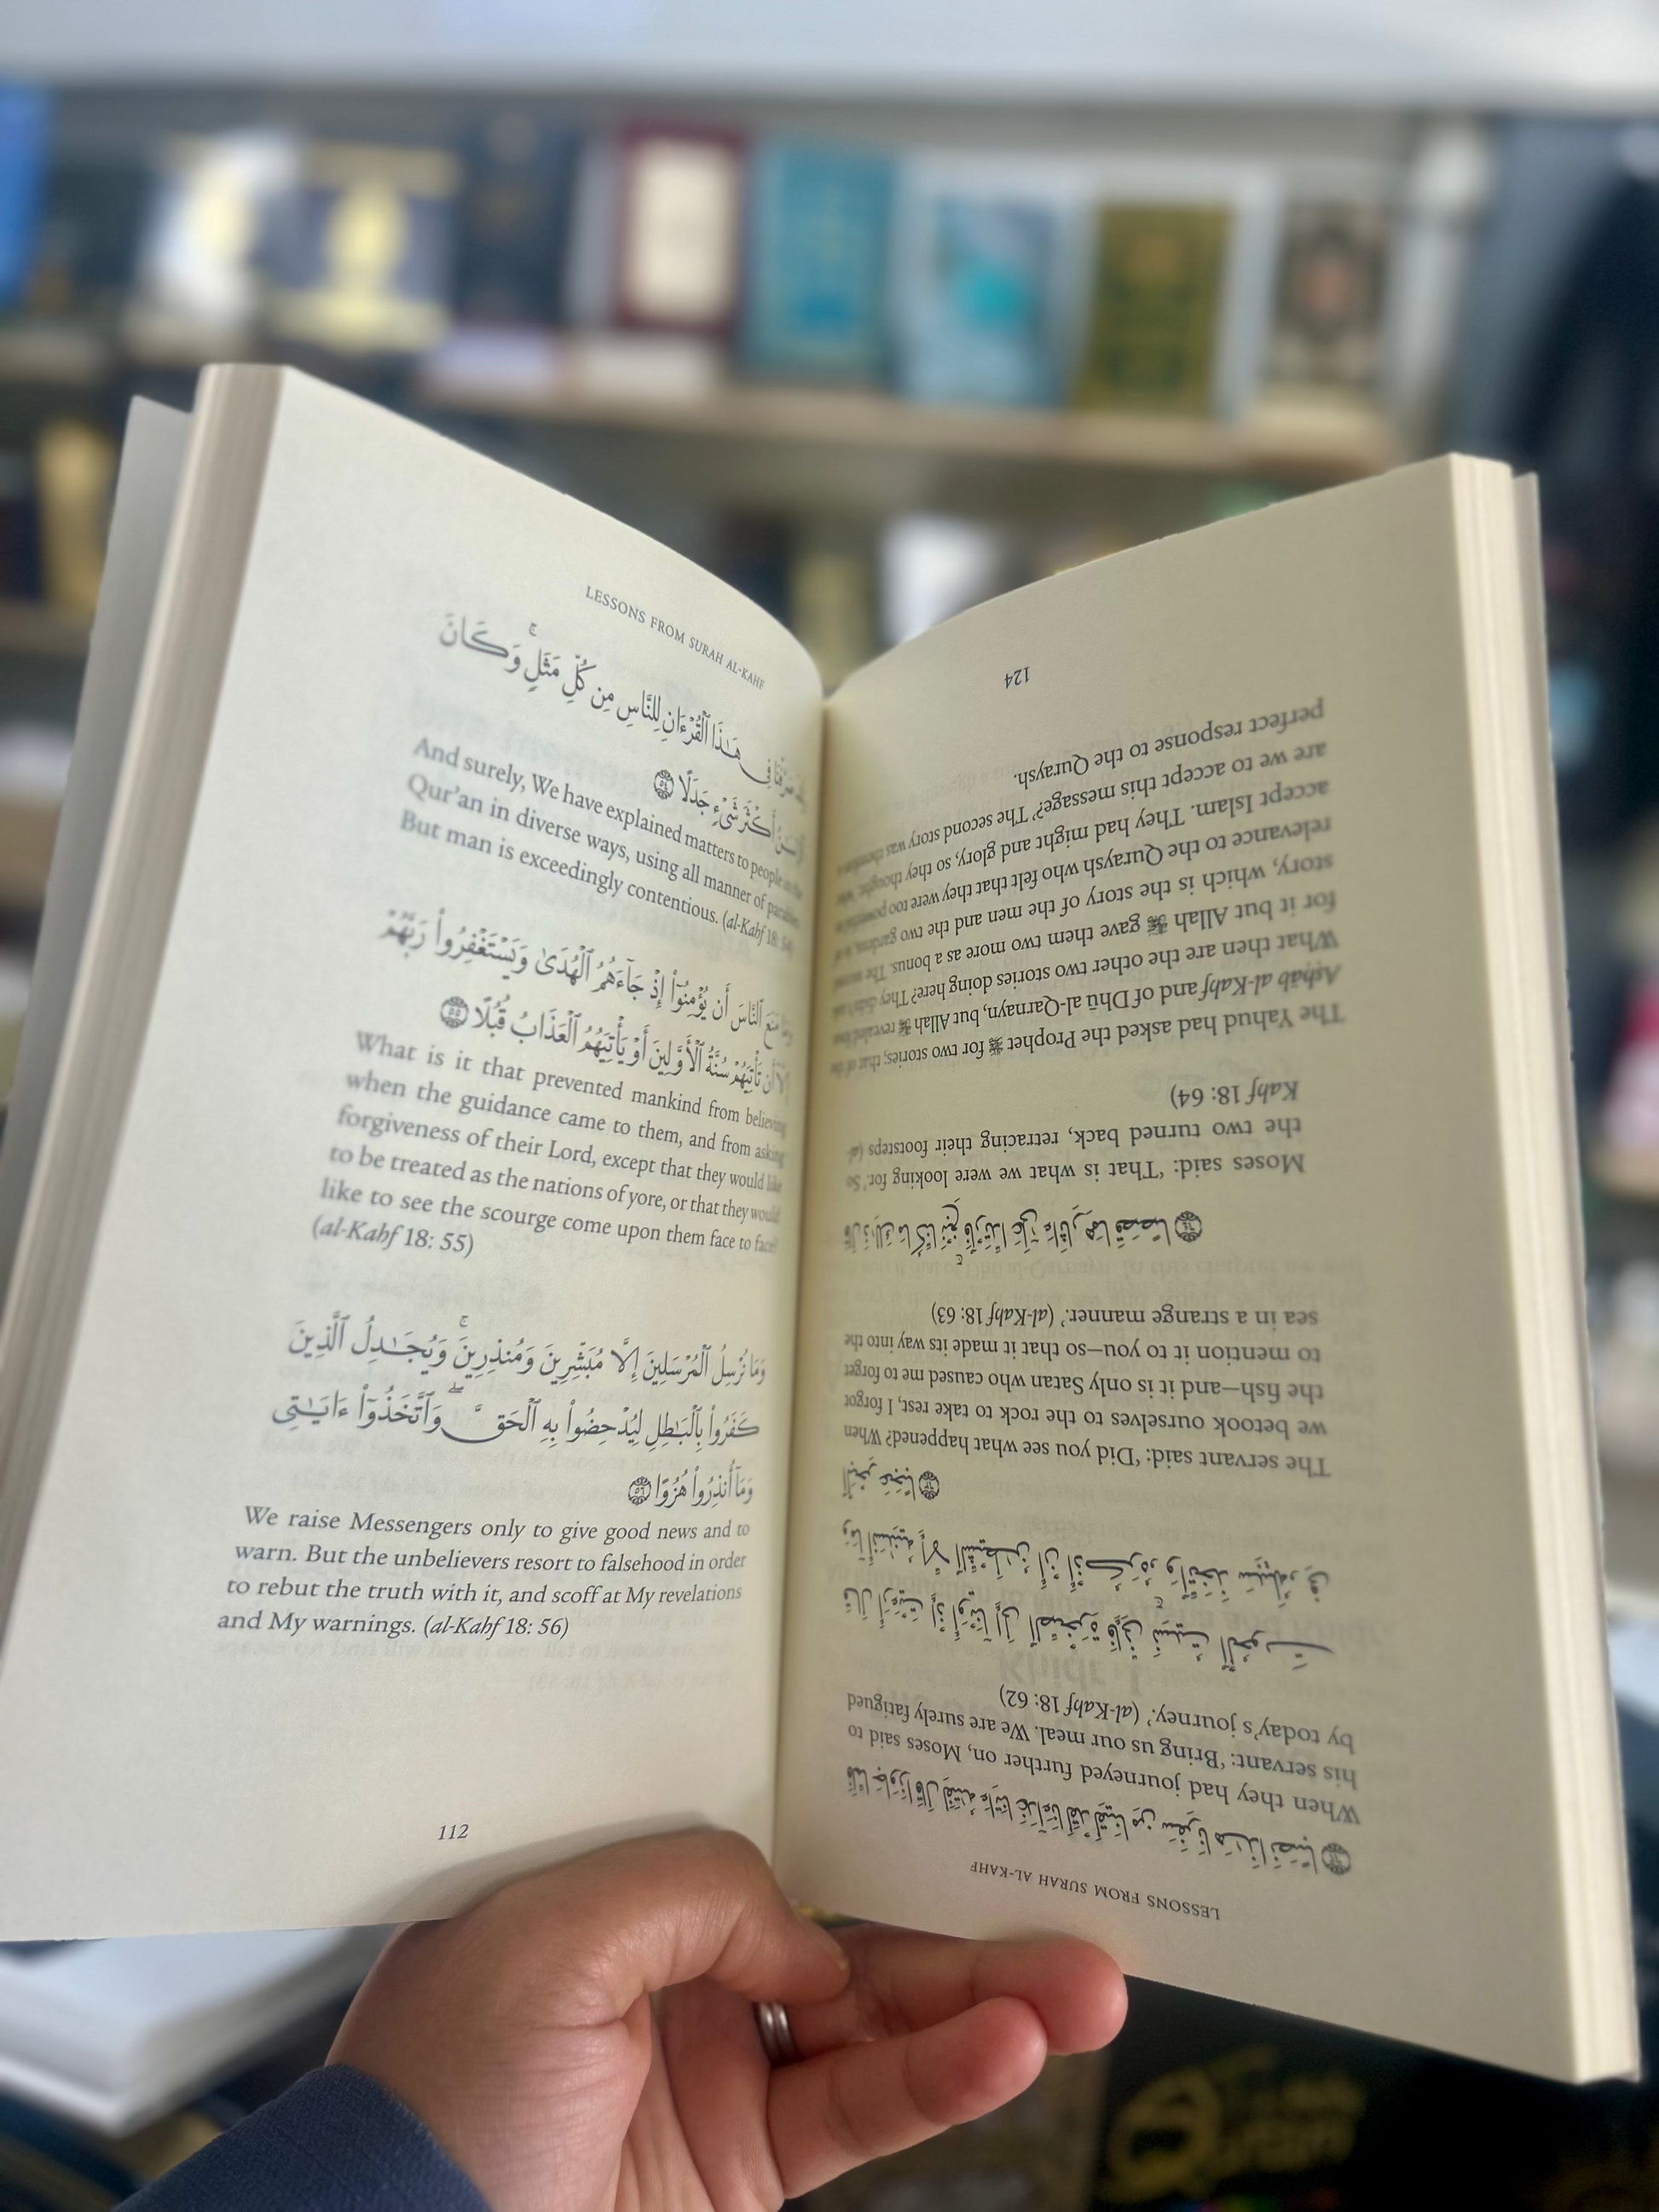 LESSONS FROM SURAH AL-KAHF
صَرَّفْنَا فِى هَـٰذَا ٱلْقُرْءَانِ لِلنَّاسِ مِن كُلِّ مَثَلٍ ۚ وَكَانَ
أَكْثَرَ شَىْءٍ جَدَلًا ٥٤
And surely, We have explained matters to people in the
Qur'an in diverse ways, using all manner of parables.
But man is exceedingly contentious. (al-Kahf 18: 54)
وَمَا مَنَعَ ٱلنَّاسَ أَن يُؤْمِنُوٓا۟ إِذْ جَآءَهُمُ ٱلْهُدَىٰ وَيَسْتَغْفِرُوا۟ رَبَّهُمْ
إِلَّآ أَن تَأْتِيَهُمْ سُنَّةُ ٱلْأَوَّلِينَ أَوْ يَأْتِيَهُمُ ٱلْعَذَابُ قُبُلًا ٥٥
What is it that prevented mankind from believing
when the guidance came to them, and from asking
forgiveness of their Lord, except that they would like
to be treated as the nations of yore, or that they would
like to see the scourge come upon them face to face?
(al-Kahf 18: 55)
وَمَا نُرْسِلُ ٱلْمُرْسَلِينَ إِلَّا مُبَشِّرِينَ وَمُنذِرِينَ ۚ وَيُجَـٰدِلُ ٱلَّذِينَ
كَفَرُوا۟ بِٱلْبَـٰطِلِ لِيُدْحِضُوا۟ بِهِ ٱلْحَقَّ ۖ وَٱتَّخَذُوٓا۟ ءَايَـٰتِى
وَمَآ أُنذِرُوا۟ هُزُوًا ٥٦
We raise Messengers only to give good news and to
warn. But the unbelievers resort to falsehood in order
to rebut the truth with it, and scoff at My revelations
and My warnings. (al-Kahf 18: 56)
112
LESSONS FROM SURAH AL-KAHF
فَلَمَّا جَاوَزَا قَالَ لِفَتَىٰهُ ءَاتِنَا غَدَآءَنَا لَقَدْ لَقِينَا مِن سَفَرِنَا هَـٰذَا نَصَبًا ٦٢
When they had journeyed further on, Moses said to
his servant: 'Bring us our meal. We are surely fatigued
by today's journey.' (al-Kahf 18: 62)
قَالَ أَرَءَيْتَ إِذْ أَوَيْنَآ إِلَى ٱلصَّخْرَةِ فَإِنِّى نَسِيتُ ٱلْحُوتَ
وَمَآ أَنسَىٰنِيهُ إِلَّا ٱلشَّيْطَـٰنُ أَنْ أَذْكُرَهُۥ ۚ وَٱتَّخَذَ سَبِيلَهُۥ فِى
ٱلْبَحْرِ عَجَبًا ٦٣
The servant said: 'Did you see what happened? When
we betook ourselves to the rock to take rest, I forgot
the fish—and it is only Satan who caused me to forget
to mention it to you—so that it made its way into the
sea in a strange manner.' (al-Kahf 18: 63)
قَالَ ذَٰلِكَ مَا كُنَّا نَبْغِ ۚ فَٱرْتَدَّا عَلَىٰٓ ءَاثَارِهِمَا قَصَصًا ٦٤
Moses said: 'That is what we were looking for.' So
the two turned back, retracing their footsteps (al-
Kahf 18: 64)
The Yahud had asked the Prophet ﷺ for two stories, that of the
Aṣḥāb al-Kahf and of Dhū al-Qarnayn, but Allah ﷻ revealed
What then are the other two stories doing here? They didn't ask
for it but Allah ﷻ gave them two more as a bonus. The second
story, which is the story of the men and the two gardens, is of
relevance to the Quraysh who felt that they were too powerful to
accept Islam. They had might and glory, so they thought, who
are we to accept this message? The second story was therefore a
perfect response to the Quraysh.
124